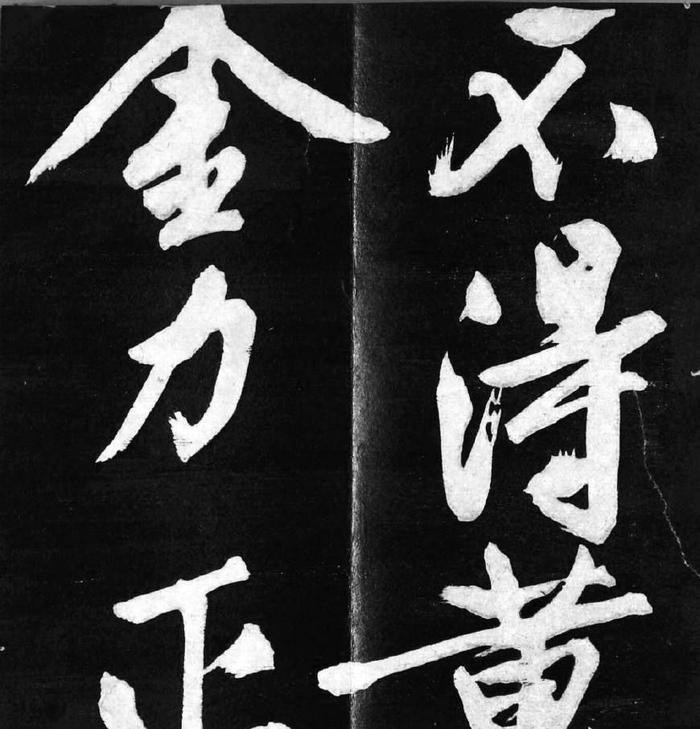 不得黄
金力正